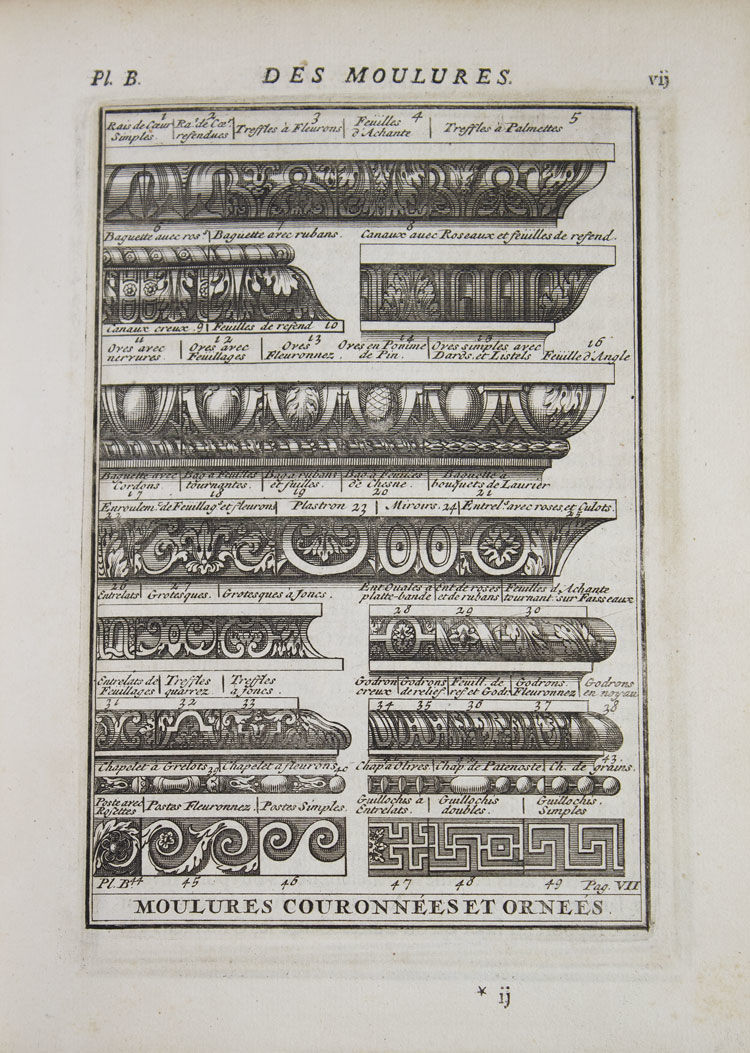 Pl. B. DES MOULURES. vij
1 2 3 4 5
Rais de Cœur | Ra.s de Cœ.r | Treffles à Fleurons | Feüilles | Treffles à Palmettes
Simples. | refendues | d'Achante
6 7 8
Baguette avec ros.s | Baguette avec rubans. Canaux avec Roseaux et feüilles de refend.
Canaux creux. 9 | Feuilles de refend 10
11 12 13 14 15 16
Oves avec | Oves avec | Oves | Oves en Pomme | Oves simples avec
nervures. | Feuillages | Fleuronnez. | de Pin. | Dards, et Listels Feüille d'Angle
Baguette avec | Bag. à Feuilles | Bag. à rubans | Bag. à feuilles | Baguette à
Cordons. | tournantes. | et fuilles. | de Chesne. | bouquets de Laurier
17 18 19 20 21
Enroulem.s de Feuillag.s et fleurons | Plastron 23 | Miroirs. 24 | Entrel.s avec roses et Culots.
22 25
26 27
Entrelats | Grotesques. | Grotesques à Joncs. Ent Ovales à | ent de roses | Feuilles d'Achante
platte-bande | et de rubans | tournant sur Faisseaux
28 29 30
Entrelats de | Treffles | Treffles Godron | Godrons | Feuill. de | Godrons | Godrons
Feuillages | quarrez | à Joncs. creux | de relief | ref et Godr | Fleuronnez | en noyau
31 32 33 34 35 36 37 38
Chapelet à Grelots 39 | Chapelet à fleurons 40 Chap à Olives | Chap. de Patenoste | Ch. de grains.
43
Poste avec | Postes Fleuronnez. | Postes Simples. Guillochis à | Guillochis | Guillochis.
Rosettes Entrelats. | doubles. | Simples
Pl. B 44 45 46 47 48 49 Pag. VII
MOULURES COURONNÉES ET ORNEÉS.
* ij